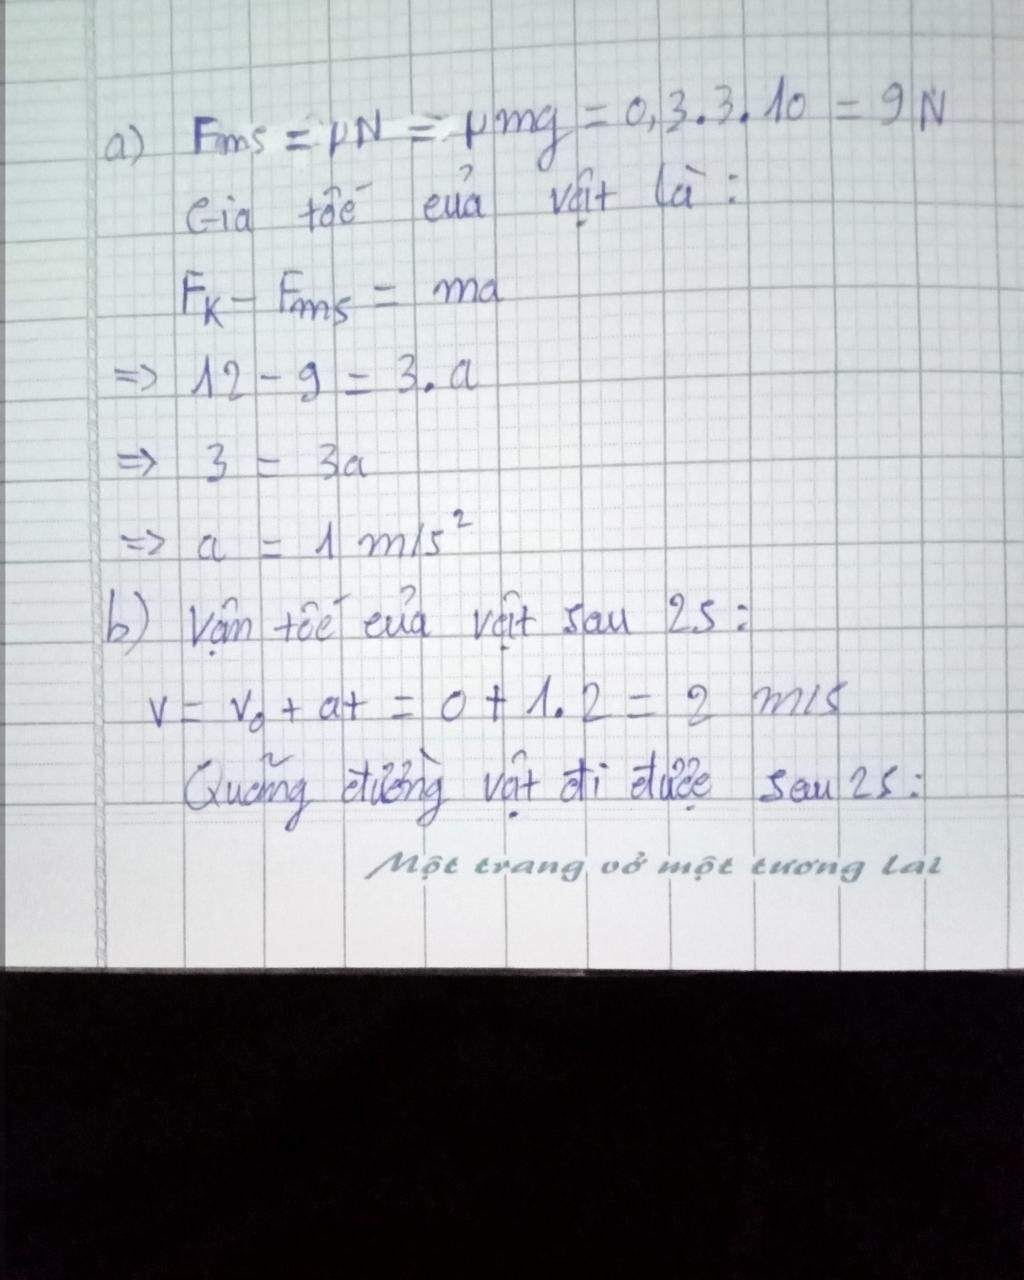 a) Fms = μN = μmg = 0,3.3.10 = 9N
Gia tốc của vật là:
FK - Fms = ma
=> 12 - 9 = 3.a
=> 3 = 3a
=> a = 1 m/s²
b) Vận tốc của vật sau 2s:
v = v₀ + at = 0 + 1.2 = 2 m/s
Quãng đường vật đi được sau 2s:
Một trang vở một tương lai